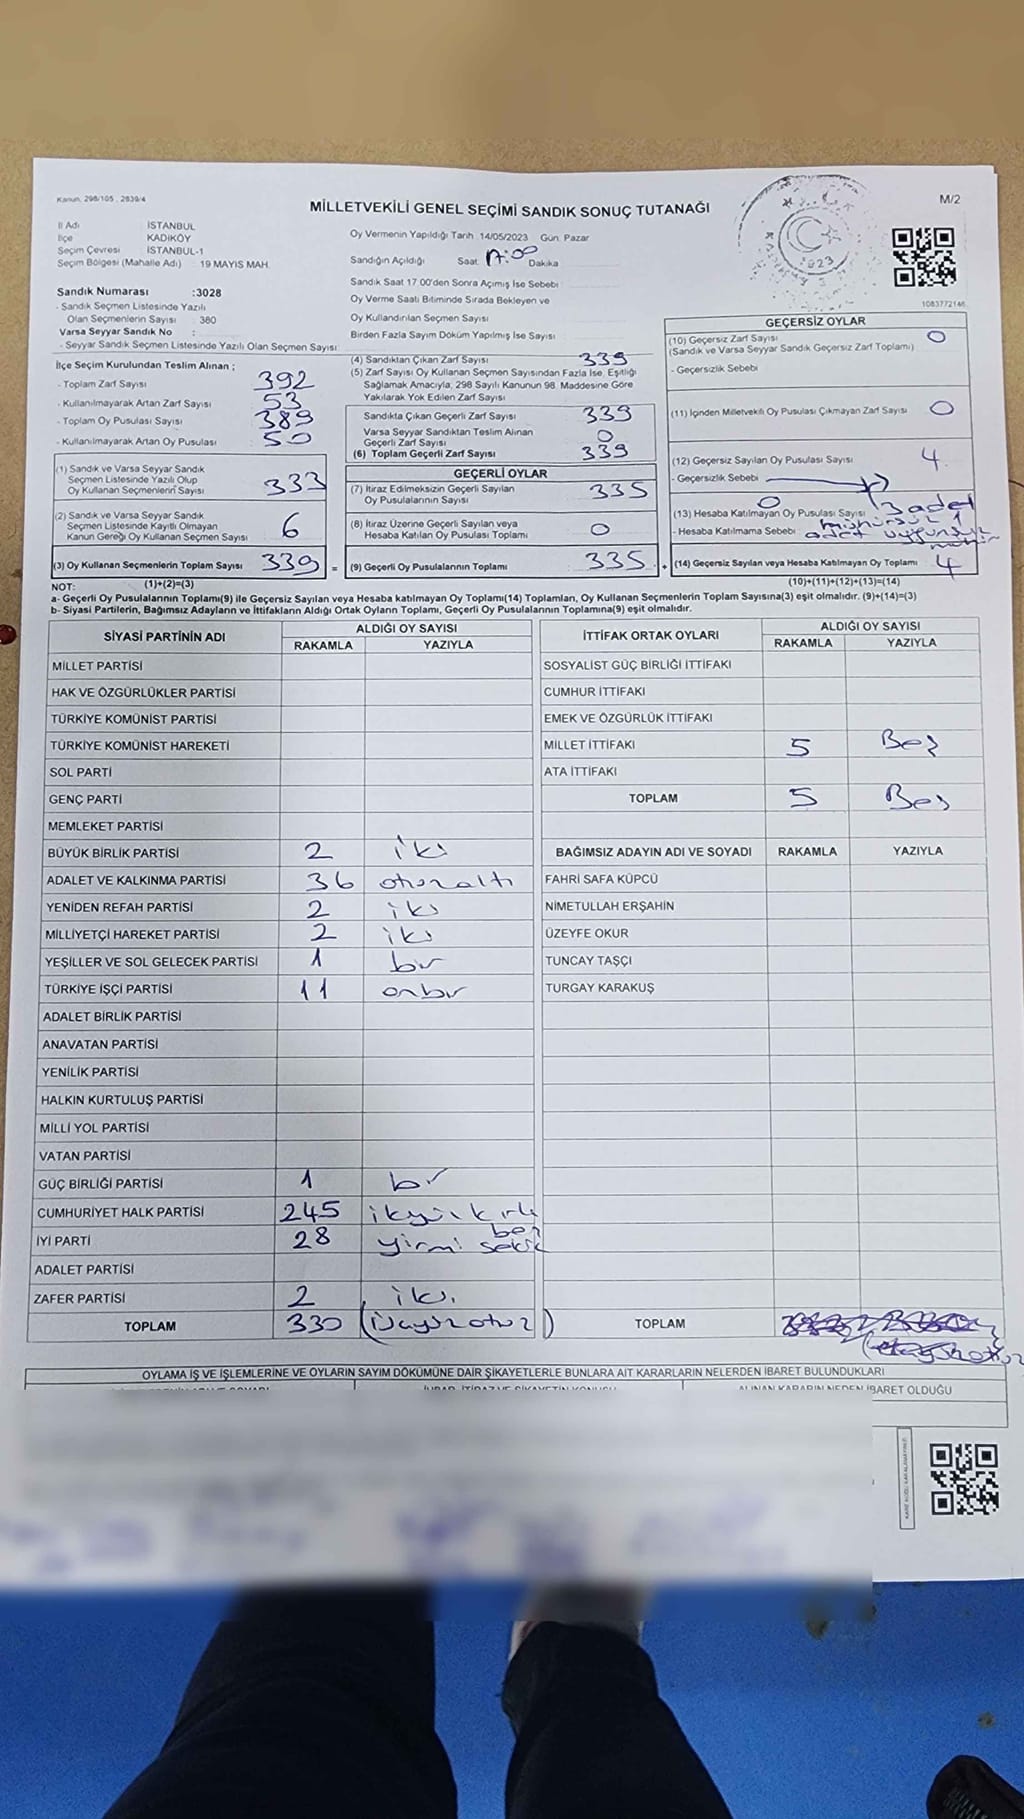 Kanun, 298/105 , 2839/4
MİLLETVEKİLİ GENEL SEÇİMİ SANDIK SONUÇ TUTANAĞI
M/2
İl Adı : İSTANBUL
İlçe : KADIKÖY
Seçim Çevresi : İSTANBUL-1
Seçim Bölgesi (Mahalle Adı) : 19 MAYIS MAH.
Oy Vermenin Yapıldığı Tarih 14/05/2023 Gün: Pazar
Sandığın Açıldığı Saat 17:00 Dakika
Sandık Saat 17:00'den Sonra Açılmış İse Sebebi
Oy Verme Saati Bitiminde Sırada Bekleyen ve
Oy Kullandırılan Seçmen Sayısı
Birden Fazla Sayım Döküm Yapılmış İse Sayısı
1923
1083772146
Sandık Numarası :3028
- Sandık Seçmen Listesinde Yazılı
Olan Seçmenlerin Sayısı : 380
Varsa Seyyar Sandık No :
- Seyyar Sandık Seçmen Listesinde Yazılı Olan Seçmen Sayısı
İlçe Seçim Kurulundan Teslim Alınan ;
- Toplam Zarf Sayısı 392
- Kullanılmayarak Artan Zarf Sayısı 53
- Toplam Oy Pusulası Sayısı 389
- Kullanılmayarak Artan Oy Pusulası 50
(1) Sandık ve Varsa Seyyar Sandık
Seçmen Listesinde Yazılı Olup
Oy Kullanan Seçmenlerin Sayısı 333
(2) Sandık ve Varsa Seyyar Sandık
Seçmen Listesinde Kayıtlı Olmayan
Kanun Gereği Oy Kullanan Seçmen Sayısı 6
(3) Oy Kullanan Seçmenlerin Toplam Sayısı 339 =
(4) Sandıktan Çıkan Zarf Sayısı 339
(5) Zarf Sayısı Oy Kullanan Seçmen Sayısından Fazla İse, Eşitliği
Sağlamak Amacıyla, 298 Sayılı Kanunun 98. Maddesine Göre
Yakılarak Yok Edilen Zarf Sayısı
Sandıkta Çıkan Geçerli Zarf Sayısı 339
Varsa Seyyar Sandıktan Teslim Alınan
Geçerli Zarf Sayısı 0
(6) Toplam Geçerli Zarf Sayısı 339
GEÇERLİ OYLAR
(7) İtiraz Edilmeksizin Geçerli Sayılan
Oy Pusulalarının Sayısı 335
(8) İtiraz Üzerine Geçerli Sayılan veya
Hesaba Katılan Oy Pusulası Toplamı 0
(9) Geçerli Oy Pusulalarının Toplamı 335 +
GEÇERSİZ OYLAR
(10) Geçersiz Zarf Sayısı 0
(Sandık ve Varsa Seyyar Sandık Geçersiz Zarf Toplamı)
- Geçersizlik Sebebi
(11) İçinden Milletvekili Oy Pusulası Çıkmayan Zarf Sayısı 0
(12) Geçersiz Sayılan Oy Pusulası Sayısı 4
- Geçersizlik Sebebi
0
(13) Hesaba Katılmayan Oy Pusulası Sayısı 3 adet
- Hesaba Katılmama Sebebi mühürsüz 1
adet uygunsuz
mühür
(14) Geçersiz Sayılan veya Hesaba Katılmayan Oy Toplamı 4
NOT: (1)+(2)=(3) (10)+(11)+(12)+(13)=(14)
a- Geçerli Oy Pusulalarının Toplamı(9) ile Geçersiz Sayılan veya Hesaba katılmayan Oy Toplamı(14) Toplamları, Oy Kullanan Seçmenlerin Toplam Sayısına(3) eşit olmalıdır. (9)+(14)=(3)
b- Siyasi Partilerin, Bağımsız Adayların ve İttifakların Aldığı Ortak Oyların Toplamı, Geçerli Oy Pusulalarının Toplamına(9) eşit olmalıdır.
SİYASİ PARTİNİN ADI ALDIĞI OY SAYISI
RAKAMLA YAZIYLA
MİLLET PARTİSİ
HAK VE ÖZGÜRLÜKLER PARTİSİ
TÜRKİYE KOMÜNİST PARTİSİ
TÜRKİYE KOMÜNİST HAREKETİ
SOL PARTİ
GENÇ PARTİ
MEMLEKET PARTİSİ
BÜYÜK BİRLİK PARTİSİ 2 iki
ADALET VE KALKINMA PARTİSİ 36 otuzaltı
YENİDEN REFAH PARTİSİ 2 iki
MİLLİYETÇİ HAREKET PARTİSİ 2 iki
YEŞİLLER VE SOL GELECEK PARTİSİ 1 bir
TÜRKİYE İŞÇİ PARTİSİ 11 onbir
ADALET BİRLİK PARTİSİ
ANAVATAN PARTİSİ
YENİLİK PARTİSİ
HALKIN KURTULUŞ PARTİSİ
MİLLİ YOL PARTİSİ
VATAN PARTİSİ
GÜÇ BİRLİĞİ PARTİSİ 1 bir
CUMHURİYET HALK PARTİSİ 245 ikiyüzkırk
beş
İYİ PARTİ 28 yirmi sekiz
ADALET PARTİSİ
ZAFER PARTİSİ 2 iki.
TOPLAM 330 (üçyüzotuz)
İTTİFAK ORTAK OYLARI ALDIĞI OY SAYISI
RAKAMLA YAZIYLA
SOSYALİST GÜÇ BİRLİĞİ İTTİFAKI
CUMHUR İTTİFAKI
EMEK VE ÖZGÜRLÜK İTTİFAKI
MİLLET İTTİFAKI 5 Beş
ATA İTTİFAKI
TOPLAM 5 Beş
BAĞIMSIZ ADAYIN ADI VE SOYADI RAKAMLA YAZIYLA
FAHRİ SAFA KÜPCÜ
NİMETULLAH ERŞAHİN
ÜZEYFE OKUR
TUNCAY TAŞÇI
TURGAY KARAKUŞ
TOPLAM
OYLAMA İŞ VE İŞLEMLERİNE VE OYLARIN SAYIM DÖKÜMÜNE DAİR ŞİKAYETLERLE BUNLARA AİT KARARLARIN NELERDEN İBARET BULUNDUKLARI
ALINAN KARARIN NEDEN İBARET OLDUĞU